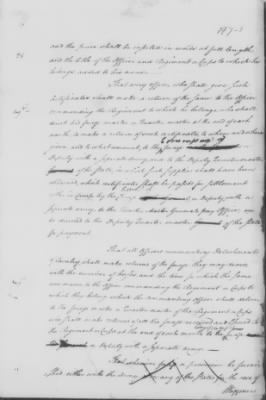 197-3
and the price shall be inserted in words at full length
and the title of the Officer and Regiment or Corps to which he
belongs added to his name.
That every officer who shall give such
Certificates shall make a return of the same to the Officer
commanding the Regiment to which he belongs who shall
and his forage master or Quarter master at the end of each
month make a return of such certificates to whom and when
given and to what amount, to the forage
Deputy with a separate army, and to the Deputy Quarter master
of the State, in which such supplies shall have been
obtained, which certificates shall be passed for settlement
Deputy with a
separate army, to the Quarter Master Generals pay Officer, or
be carried to the Deputy Quarter master of the State
for payment.
That all Officers commanding Detachments
of Cavalry shall make returns of the forage they may receive
with the number of horses and the time for which the same
was drawn to the officer commanding the Regiment or Corps to
which they belong which the commanding Officer shall deliver
to the forage master or Quarter master of the Regiment or Corps
who shall make returns of all the forage received and issued to
the Regiment or Corps at the end of each month to the
or Deputy with a separate army
That a provision be
the States for the use of